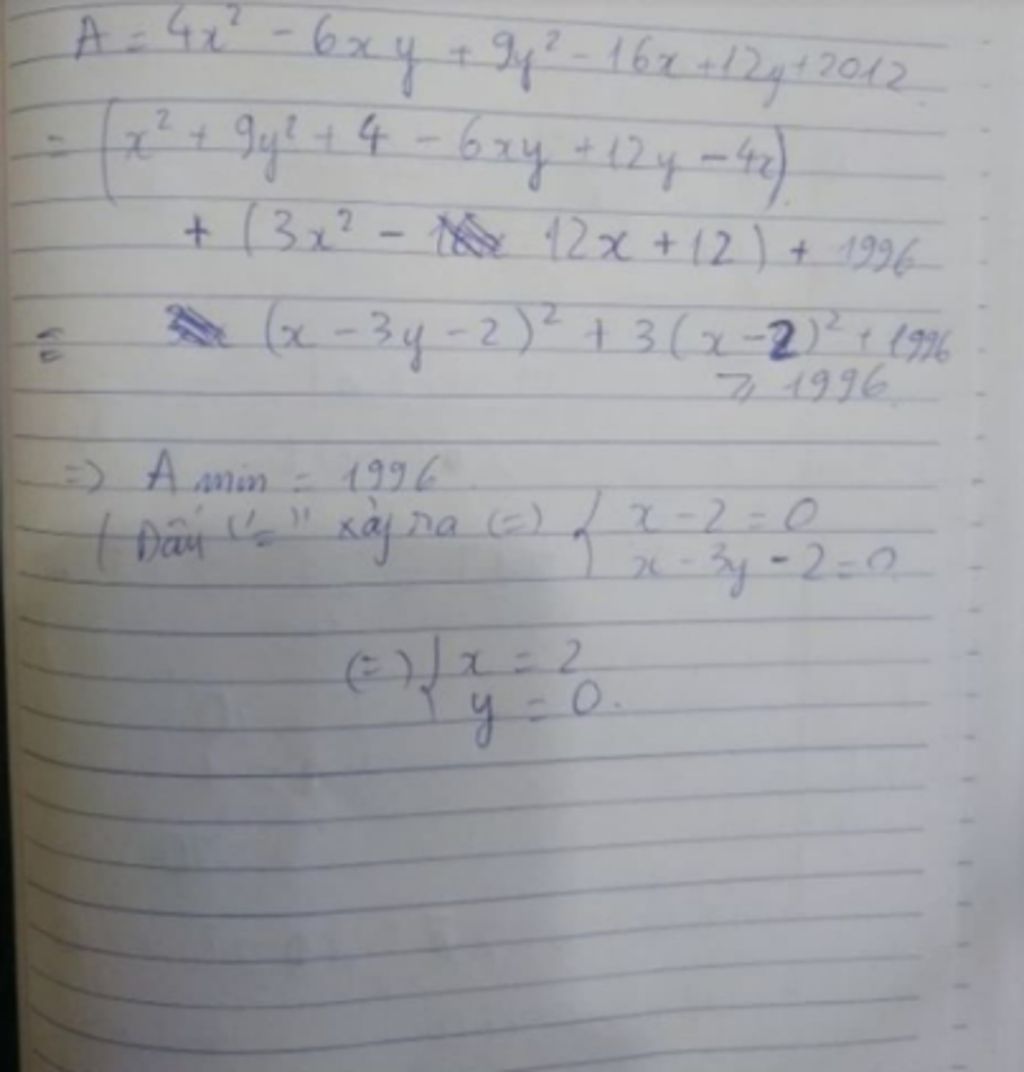 A = 4x² - 6xy + 9y² - 16x + 12y + 2012
= (x² + 9y² + 4 - 6xy + 12y - 4x)
+ (3x² - 12x + 12) + 1996
= (x - 3y - 2)² + 3(x - 2)² + 1996
⩾ 1996
=> A min = 1996
(Dấu "=" xảy ra (=) { x - 2 = 0
x - 3y - 2 = 0
(=) { x = 2
y = 0.